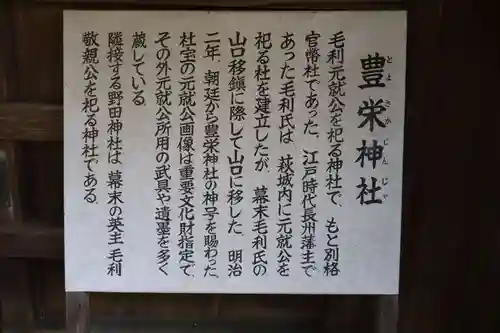 豊栄神社
とよさかじんじゃ
毛利元就公を祀る神社で、もと別格
官幣社であった。江戸時代長州藩主で
あった毛利氏は、萩城内に元就公を
祀る社を建立したが、幕末毛利氏の
山口移鎮に際して山口に移した。明治
二年、朝廷から豊栄神社の神号を賜わった。
社宝の元就公画像は重要文化財指定で、
その外元就公所用の武具や遺墨を多く
蔵している。
隣接する野田神社は、幕末の英主、毛利
敬親公を祀る神社である。